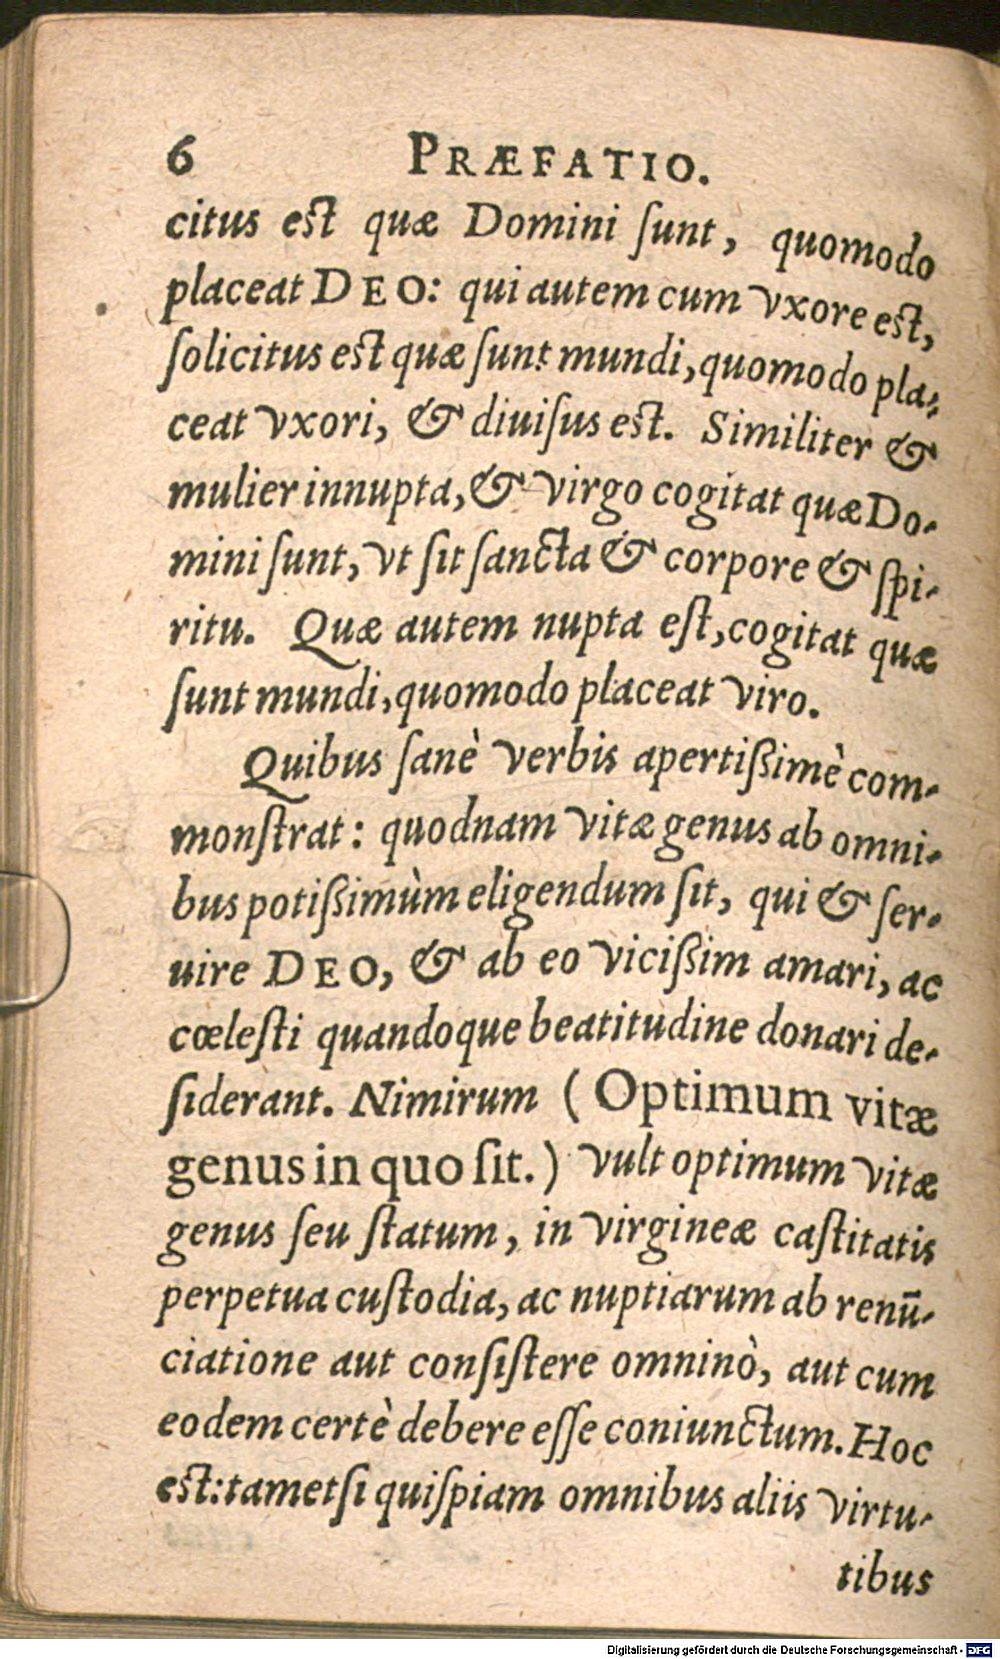 6 PRÆFATIO.
citus est quæ Domini ſunt, quomodo
placeat DEO: qui autem cum vxore est,
ſolicitus est quæ ſunt mundi, quomodo pla-
ceat vxori, & diuiſus est. Similiter &
mulier innupta, & virgo cogitat quæ Do-
mini ſunt, vt ſit ſancta & corpore & ſpi-
ritu. Quæ autem nupta eſt, cogitat quæ
ſunt mundi, quomodo placeat viro.
Quibus ſanè verbis apertiſsimè com-
monſtrat: quodnam vitæ genus ab omni-
bus potiſsimùm eligendum ſit, qui & ſer-
uire DEO, & ab eo viciſsim amari, ac
cœleſti quandoque beatitudine donari de-
ſiderant. Nimirum (Optimum vitæ
genus in quo ſit.) vult optimum vitæ
genus ſeu ſtatum, in virgineæ caſtitatis
perpetua cuſtodia, ac nuptiarum ab renū-
ciatione aut conſiſtere omninò, aut cum
eodem certè debere eſſe coniunctum. Hoc
est: tametſi quiſpiam omnibus aliis virtu-
tibus
Digitalisierung gefördert durch die Deutsche Forschungsgemeinschaft - DFG